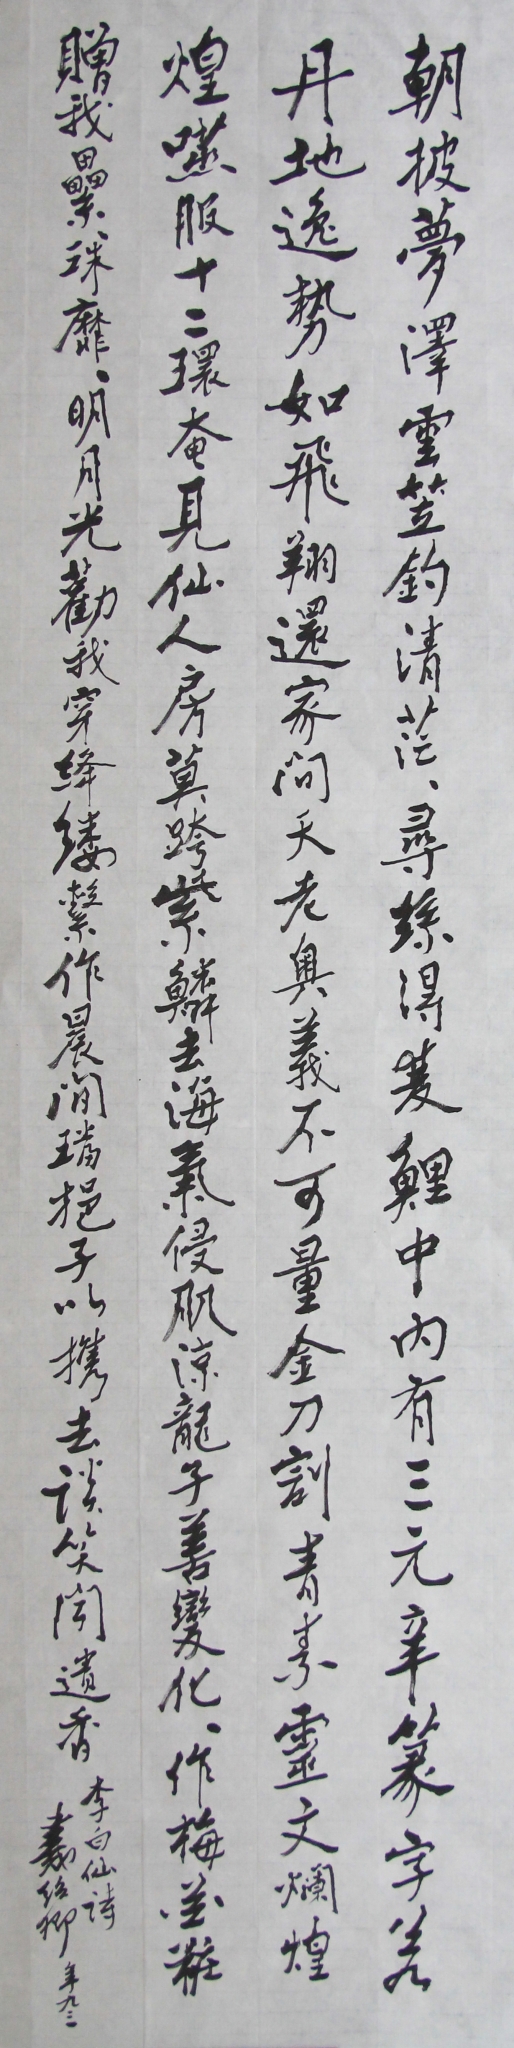 朝披夢澤雲笠釣清茫、尋絲得雙鯉中內有三元章篆字若
丹地逸勢如飛翔還家問天老奧義不可量金刀割青素靈文爛煌
煌嚥服十二環奄見仙人房莫跨紫鱗去海氣侵肌涼龍子善變化、作梅花粧
贈我纍、珠靡、明月光勸我穿絳縷繫作晨間璫挹子以攜去談笑聞遺香
李白仙詩
年九三